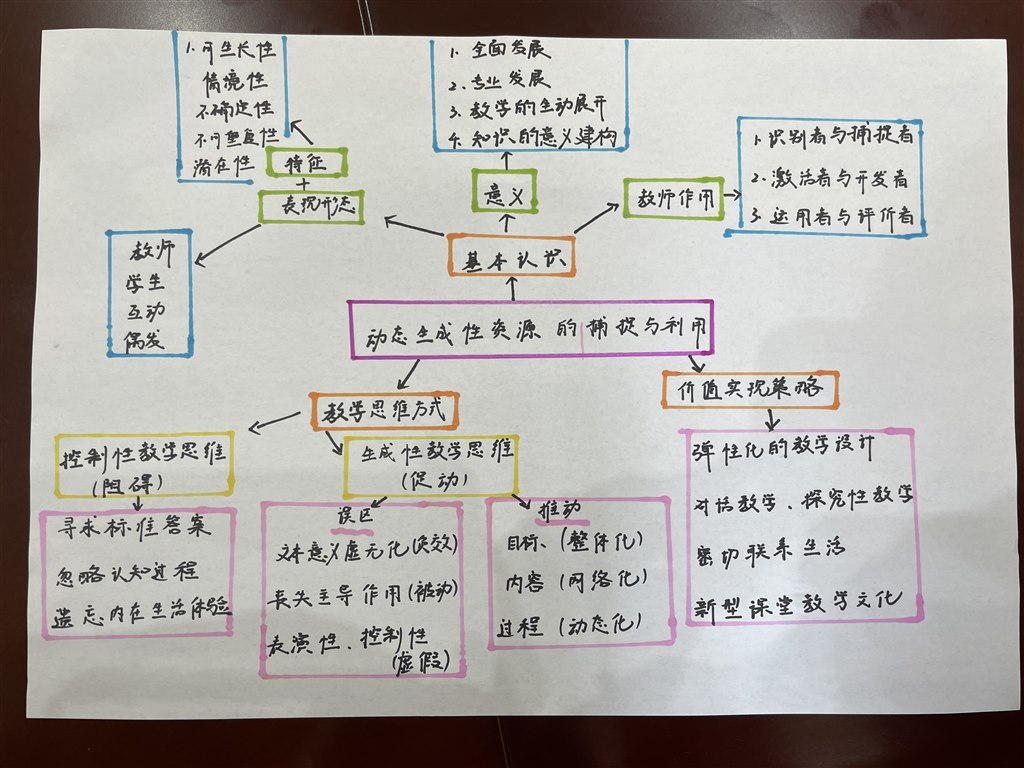 1. 可生长性
情境性
不确定性
不可重复性
潜在性
特征
+
表现形态
教师
学生
互动
偶发
1. 全面发展
2. 专业发展
3. 教学的生动展开
4. 知识的意义建构
意义
教师作用
1. 识别者与捕捉者
2. 激活者与开发者
3. 运用者与评价者
基本认识
动态生成性资源的捕捉与利用
教学思维方式
控制性教学思维
(阻碍)
寻求标准答案
忽略认知过程
遗忘内在生活体验
生成性教学思维
(促动)
误区
文本意义虚无化(失效)
丧失主导作用(被动)
表演性、控制性
(虚假)
推动
目标、(整体化)
内容(网络化)
过程(动态化)
价值实现策略
弹性化的教学设计
对话教学、探究性教学
密切联系生活
新型课堂教学文化